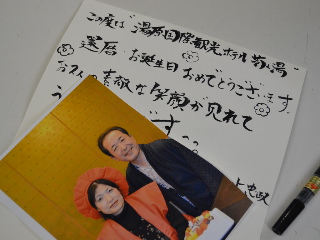 この度は“湯原国際観光ホテル菊之湯”
還暦・お誕生日おめでとうございます。
お2人の素敵な笑顔が見れて
う
です